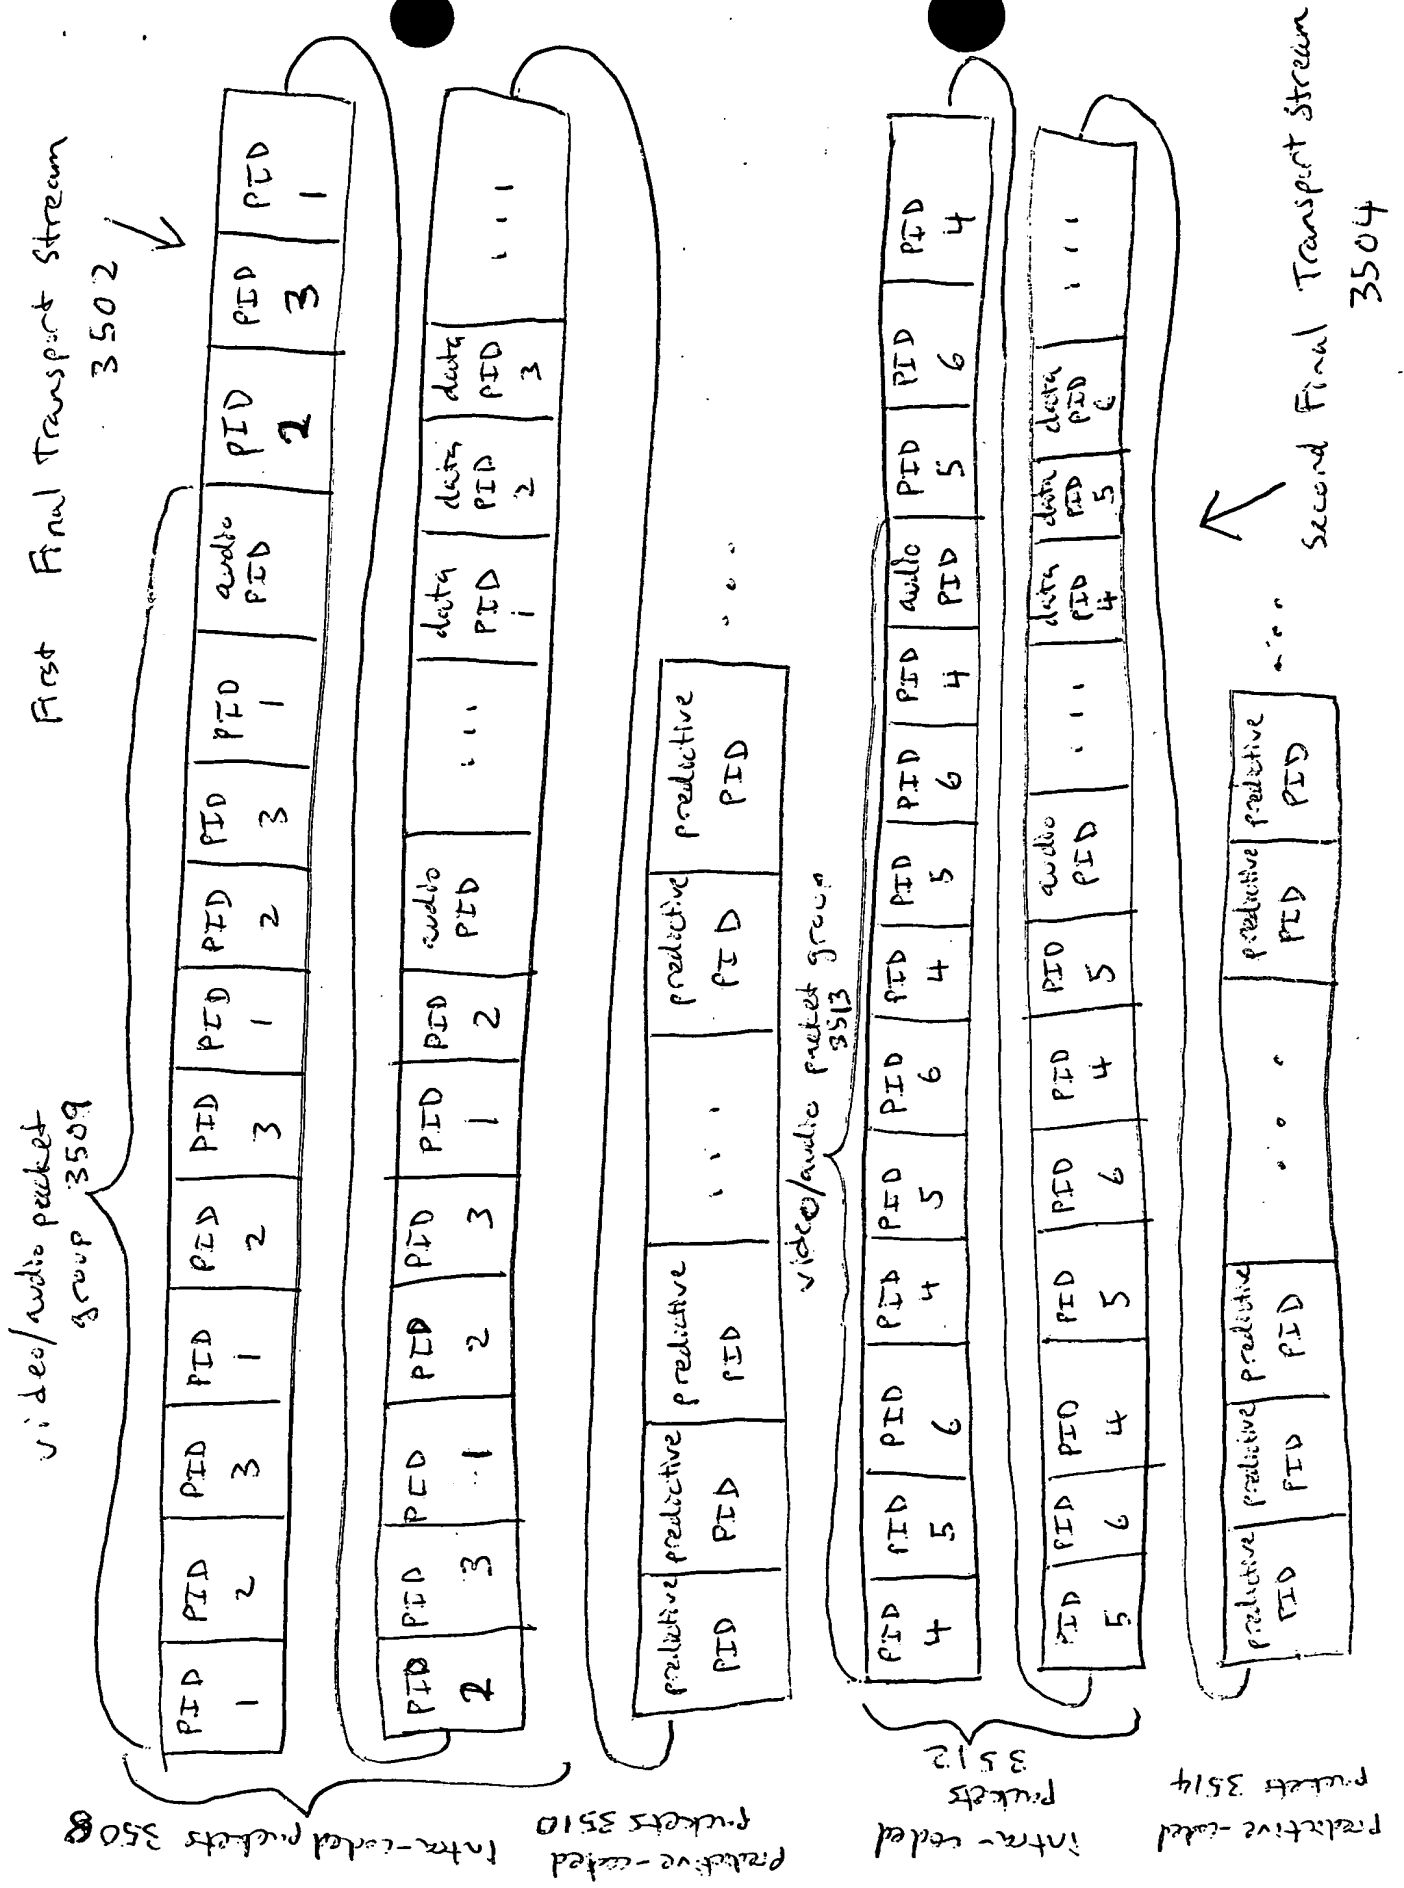 First Final Transport Stream
3502
video/audio packet
group 3509
PID 1
PID 2
PID 3
PID 1
PID 2
PID 3
PID 1
PID 2
PID 3
PID 1
audio PID
PID 2
PID 3
PID 1
PID 2
PID 3
PID 1
PID 2
PID 3
PID 1
PID 2
audio PID
...
data PID 1
data PID 2
data PID 3
...
Intra-coded packets 3508
predictive PID
predictive PID
predictive PID
...
predictive PID
predictive PID
...
Predictive-coded
packets 3510
video/audio packet group
3513
PID 4
PID 5
PID 6
PID 4
PID 5
PID 6
PID 4
PID 5
PID 6
PID 4
audio PID
PID 5
PID 6
PID 4
PID 5
PID 6
PID 4
PID 5
PID 6
PID 4
PID 5
audio PID
...
data PID 4
data PID 5
data PID 6
...
intra-coded
packets
3512
predictive PID
predictive PID
predictive PID
...
predictive PID
predictive PID
...
Predictive-coded
packets 3514
Second Final Transport Stream
3504